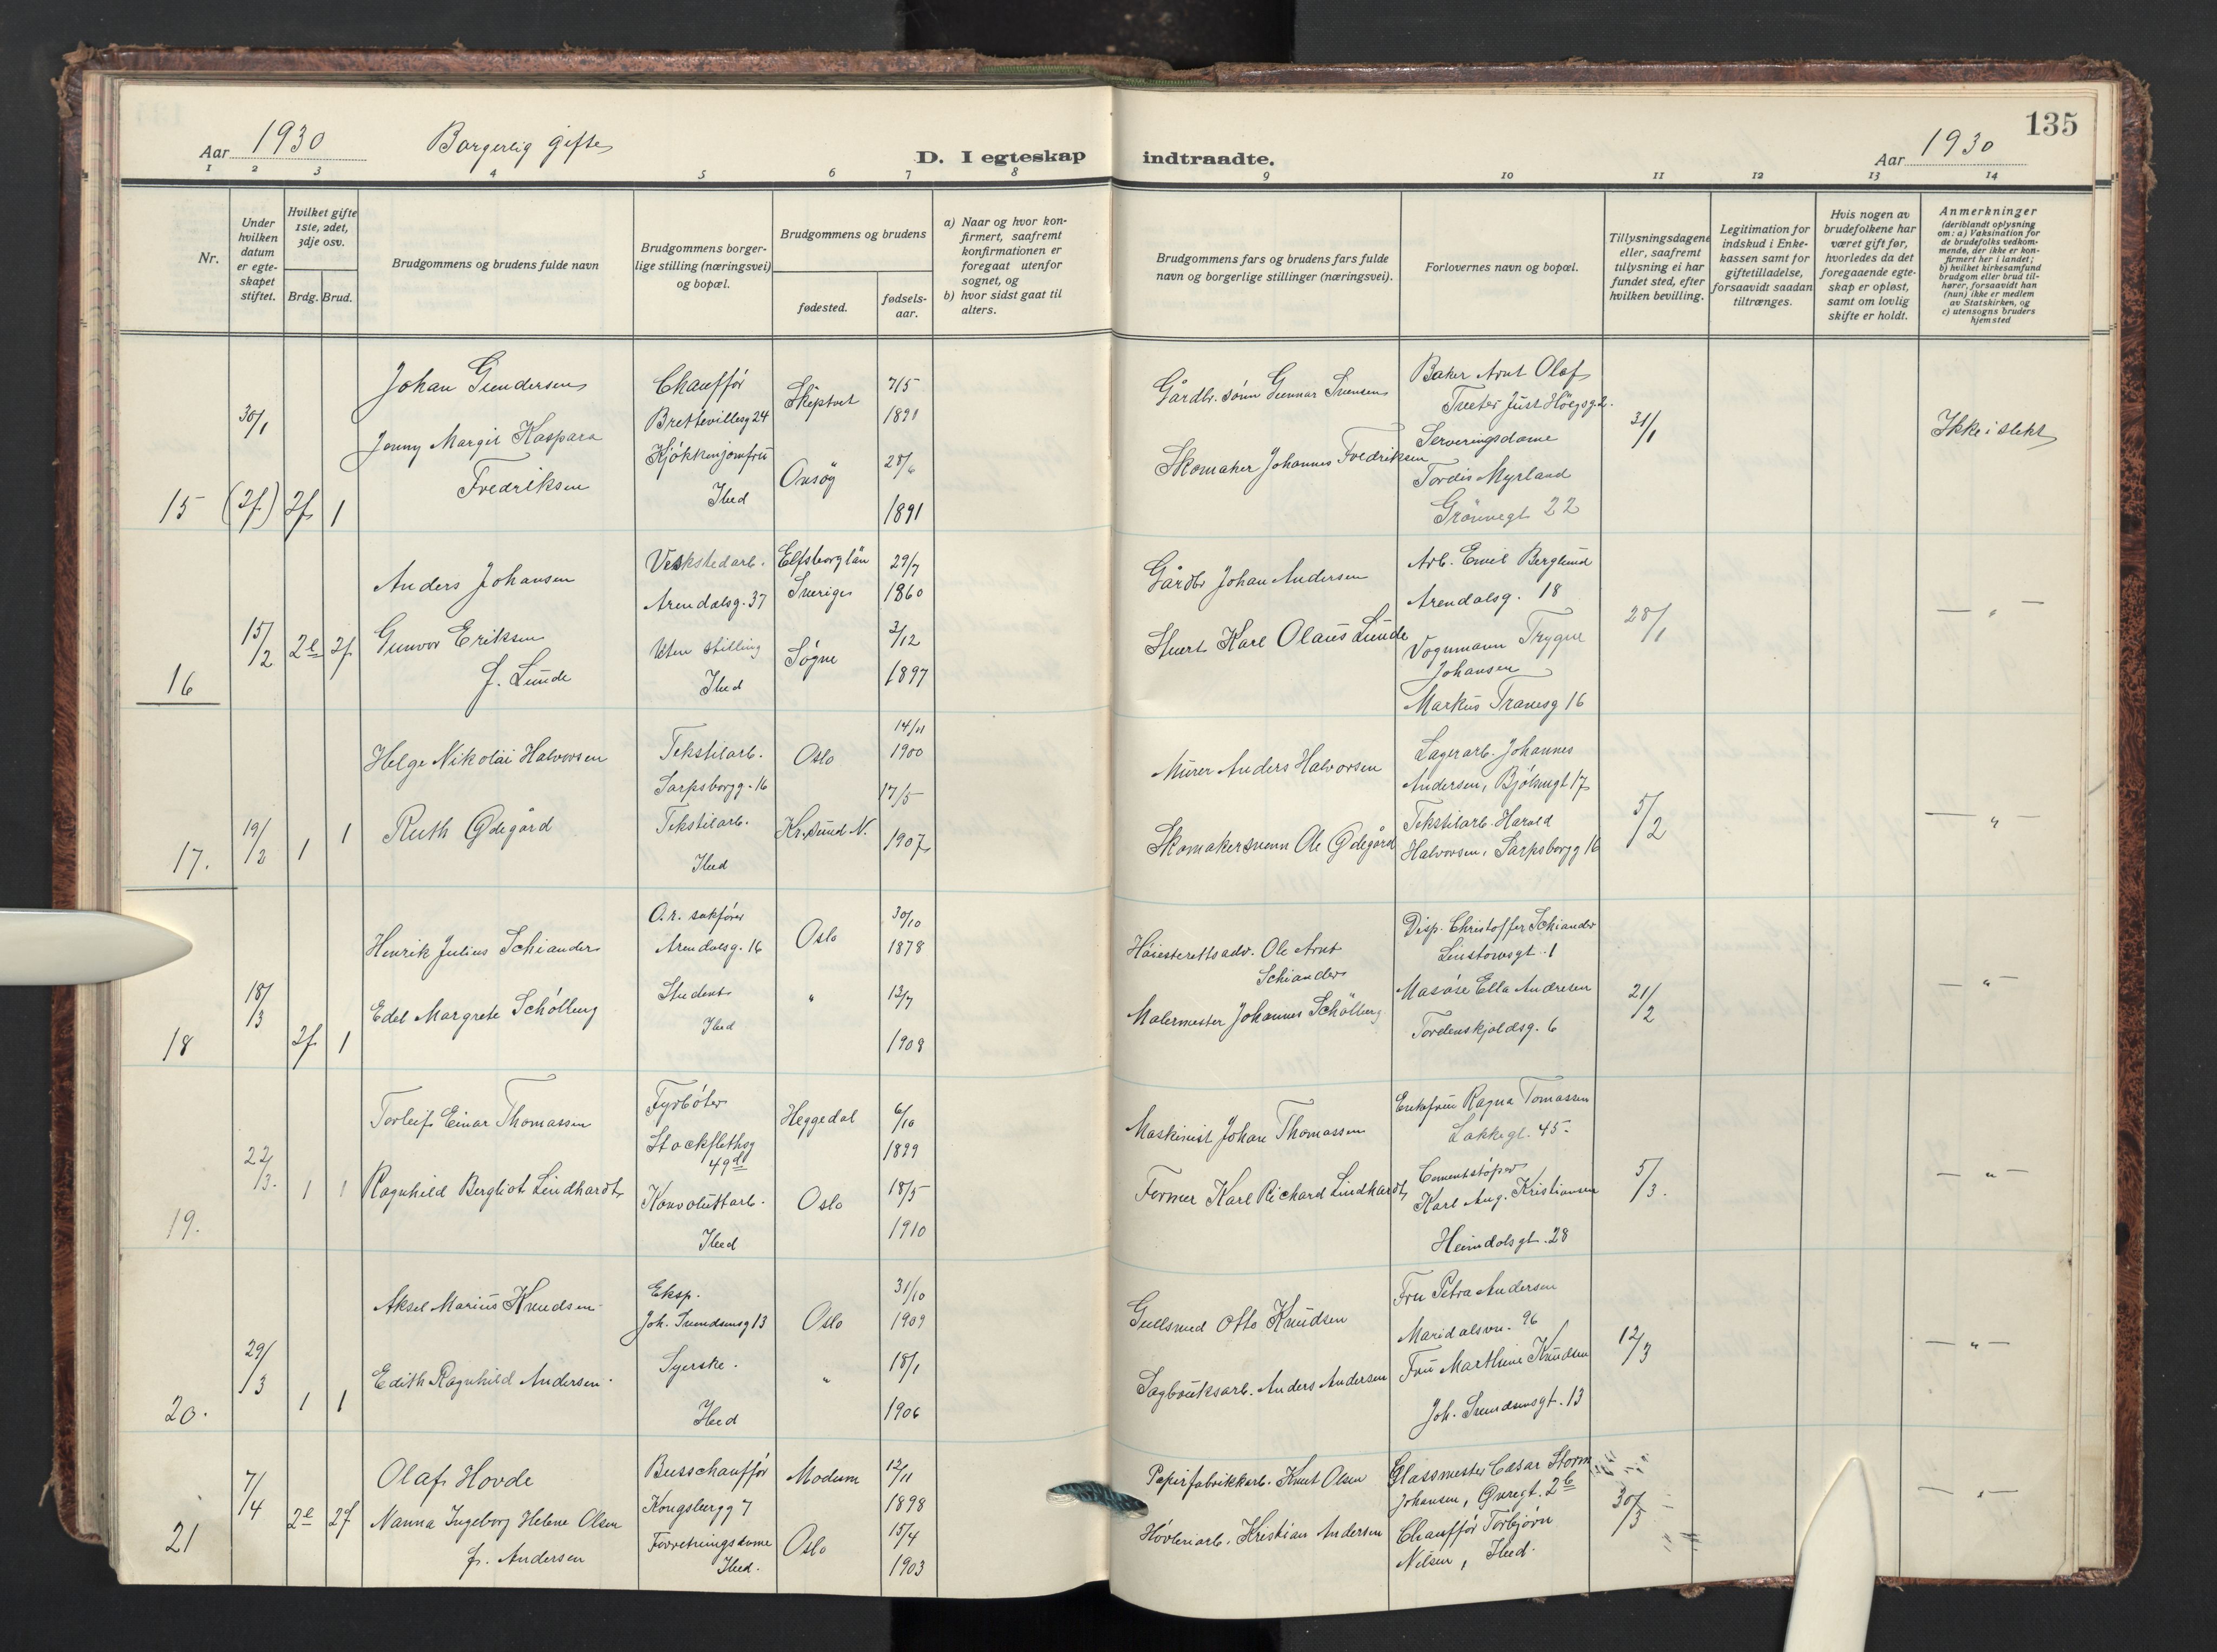 135
Aar 1930
Borgerlig gifte
D. I egteskap indtraadte.
Aar 1930
1 2 3 4 5 6 7 8 9 10 11 12 13 14
Nr.
Under
hvilken
datum
er egte-
skapet
stiftet.
Hvilket gifte
1ste, 2det,
3dje osv.
Brdg. Brud.
Brudgommens og brudens fulde navn
Brudgommens borger-
lige stilling (næringsvei)
og bopæl.
Brudgommens og brudens
fødested.
fødsels-
aar.
a) Naar og hvor kon-
firmert, saafremt
konfirmationen er
foregaat utenfor
sognet, og
b) hvor sidst gaat til
alters.
Brudgommens fars og brudens fars fulde
navn og borgerlige stillinger (næringsvei).
Forlovernes navn og bopæl.
Tillysningsdagene
eller, saafremt
tillysning ei har
fundet sted, efter
hvilken bevilling.
Legitimation for
indskud i Enke-
kassen samt for
giftetilladelse,
forsaavidt saadan
tiltrænges.
Hvis nogen av
brudefolkene har
været gift før,
hvorledes da det
foregaaende egte-
skap er opløst,
samt om lovlig
skifte er holdt.
Anmerkninger
(deriblandt oplysning
om: a) Vaksination for
de brudefolks vedkom-
mende, der ikke er kon-
firmert her i landet;
b) hvilket kirkesamfund
brudgom eller brud til-
hører, forsaavidt han
(hun) ikke er medlem
av Statskirken, og
c) utensogns bruders
hjemsted
15
30/1
(2f) 2f 1
Johan Gundersen
Jenny Margit Kaspara
Fredriksen
Chauffór
Brettevillesg 24
Kjókkenjomfru
Ibed
Skeptvet
Onsöy
7/5
1891
28/6
1891
Gårdbr. sönn Gunnar Svensen
Skomaker Johannes Fredriksen
Baker Arnt Olaf
Tveter Just Höegsg. 2.
Serveringsdame
Tordis Myrland
Grönnegt 22
31/1
Ikke i slekt
16
15/2
2e 2f
Anders Johansen
Gunvor Eriksen
f. Lunde
Verkstedarb.
Arendalsg. 37
Uten stilling
Ibed
Elfsborg län
Sverige
Søgne
29/7
1860
3/12
1897
Gårdbr Johan Andersen
Stuert Karl Olaus Lunde
Arb. Emil Berglund
Arendalsg. 18
Vognmann Trygve
Johansen
Markus Tranesg 16
28/1
— " —
17.
19/2
1 1
Helge Nikolai Halvorsen
Ruth Ødegård
Tekstilarb.
Sarpsborgg. 16
Tekstilarb.
Ibed
Oslo
Kr.sund N.
14/11
1900
17/5
1907
Murer Anders Halvorsen
Skomakersvenn Ole Ødegård
Lagerarb. Johannes
Andersen, Bjölsengt 17
Tekstilarb. Harald
Halvorsen, Sarpsborgg 16
5/2
— " —
18
18/3
2f 1
Henrik Julius Schiander
Edel Margrete Schólberg
O.r. sakförer
Arendalsg. 16
Student
Ibed
Oslo
"
30/10
1878
13/7
1908
Höiesterettsadv. Ole Arnt
Schiander
Malermester Johannes Schólberg
Disp. Christoffer Schiander
Linstowsgt. 1
Masöse Ella Andresen
Tordenskjoldsg. 6
21/2
— " —
19.
22/3.
1 1
Torleif Einar Thomassen
Ragnhild Bergliot Lindhardt
Fyrbóter
Stockflethsg
49d
Konvoluttarb.
Ibed
Heggedal
Oslo
6/10
1899
18/5
1910
Maskinist Johan Thomassen
Former Karl Richard Lindhardt
Enkefru Ragna Tomassen
Lakkegt. 45
Cementstóper
Karl Aug. Kristiansen
Heimdalsgt. 28
5/3.
— " —
20.
29/3
1 1
Aksel Marius Knudsen
Edith Ragnhild Andersen
Eksp.
Joh. Svendsensg 13
Syerske.
Ibed
Oslo
"
31/10
1909
18/1
1906
Gullsmed Otto Knudsen
Sagbruksarb. Anders Andersen
Fru Petra Andersen
Maridalsvn. 96
Fru Marthine Knudsen
Joh. Svendsensgt. 13
12/3
— " —
21
7/4
2e 2f
Olaf Hovde
Nanna Ingeborg Helene Olsen
f. Andersen
Busschauffór
Kongsbergg 7
Forretningsdame
Ibed.
Modum
Oslo
12/11
1898
15/4
1903
Papirfabrikkarb. Knut Olsen
Hövleriarb. Kristian Andersen
Glassmester Cæsar Storm
Johansen, Øvregt. 2b
Chauffór Torbjórn
Nilsen, Ibed.
30/3
— " —